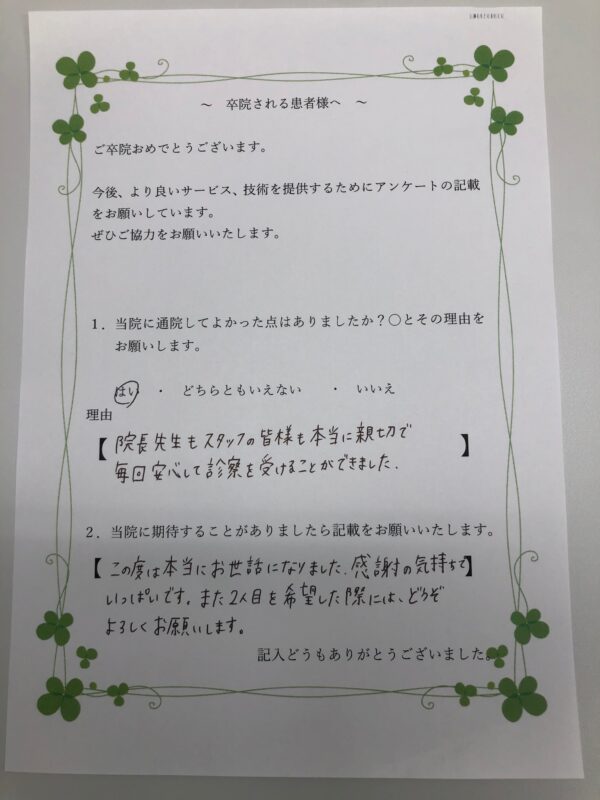 ～ 卒院される患者様へ ～
ご卒院おめでとうございます。
今後、より良いサービス、技術を提供するためにアンケートの記載
をお願いしています。
ぜひご協力をお願いいたします。
1．当院に通院してよかった点はありましたか？〇とその理由を
お願いします。
はい ・ どちらともいえない ・ いいえ
理由
【院長先生もスタッフの皆様も本当に親切で
毎回安心して診察を受けることができました.】
2．当院に期待することがありましたら記載をお願いいたします。
【この度は本当にお世話になりました.感謝の気持ちで】
いっぱいです。また2人目を希望した際には、どうぞ
よろしくお願いします。
記入どうもありがとうございました。